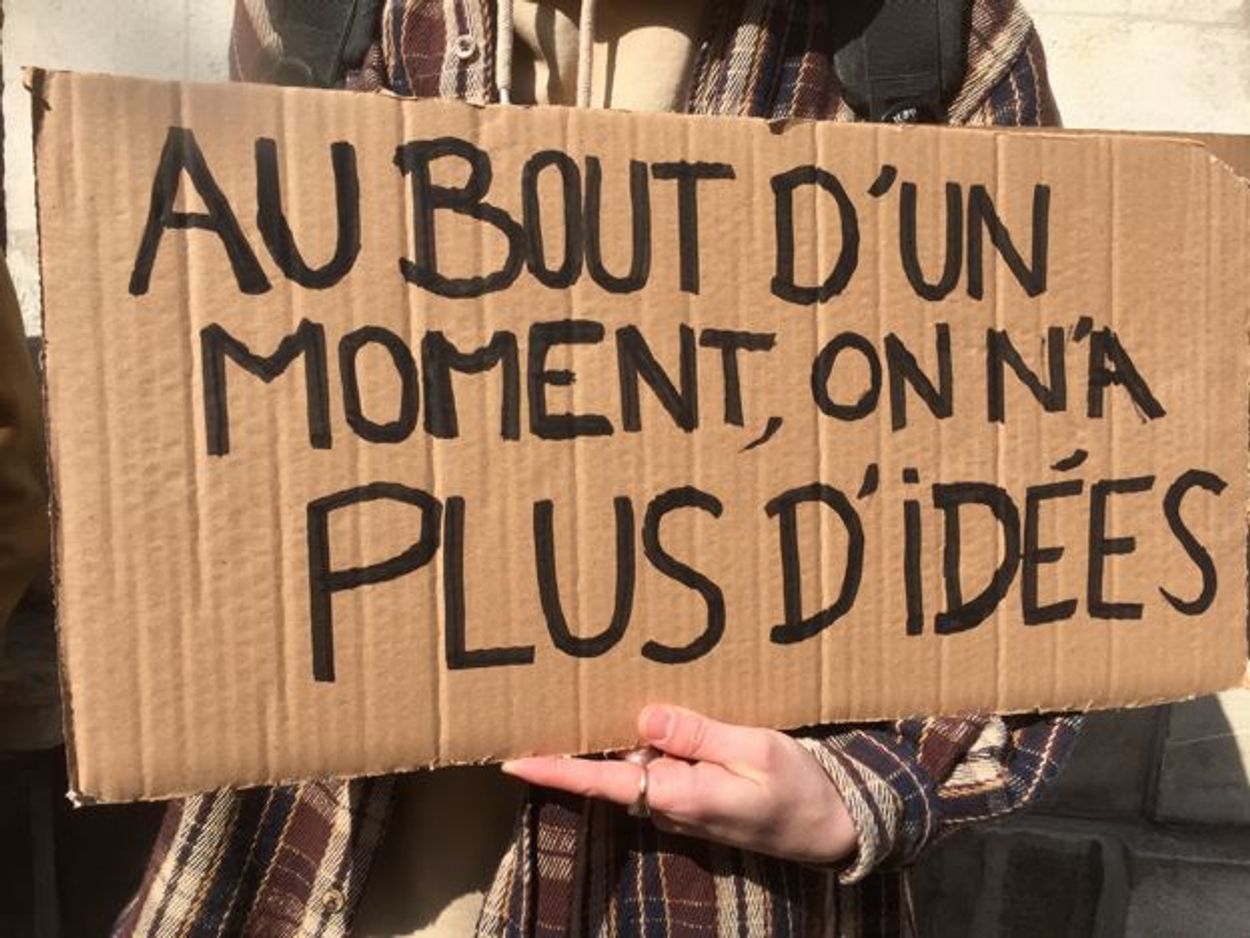 AU BOUT D'UN
MOMENT, ON N'A
PLUS D'iDÉES